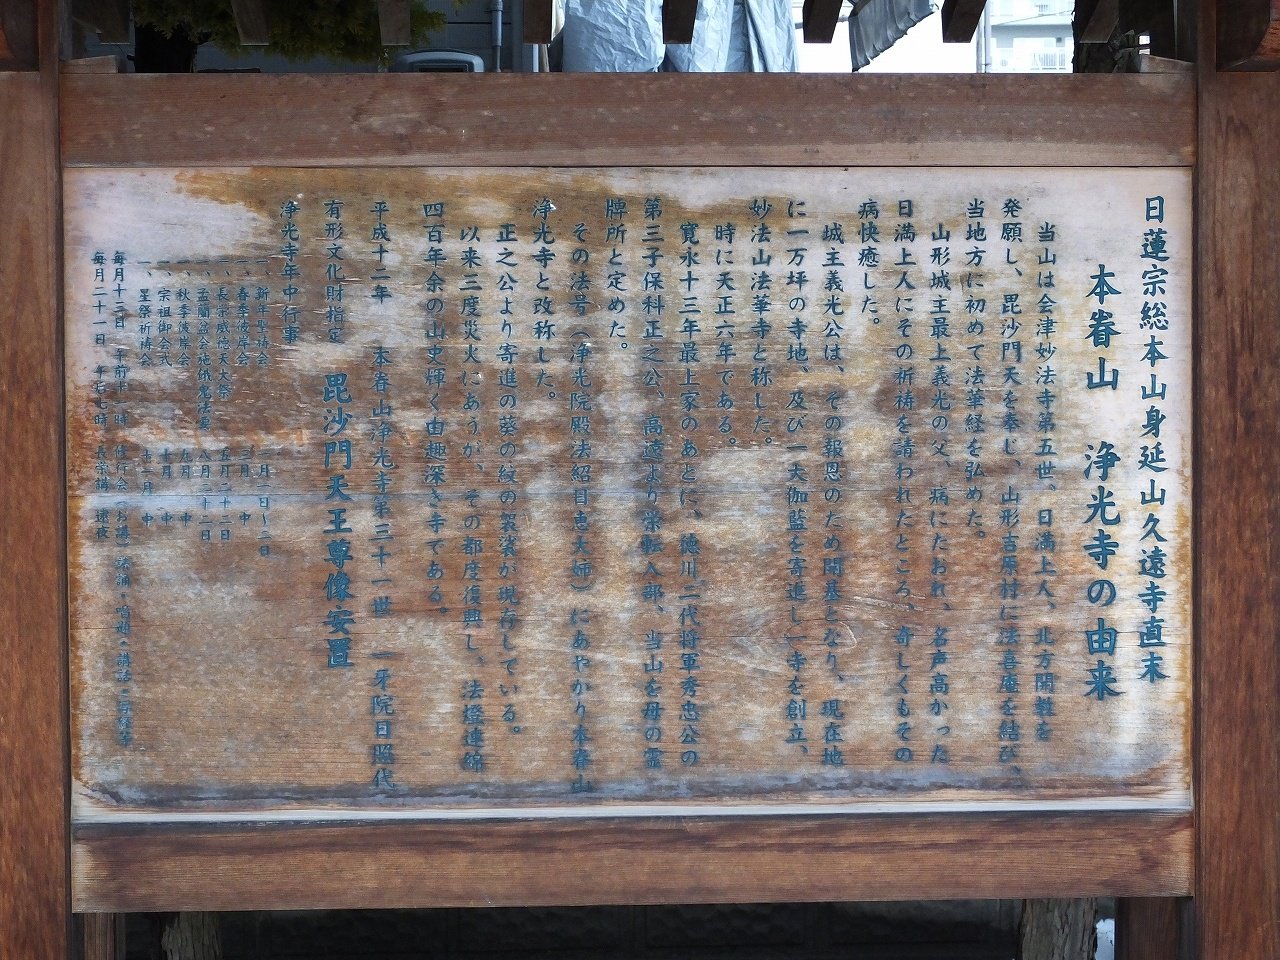 日蓮宗総本山身延山久遠寺直末
本眷山 浄光寺の由来
当山は会津妙法寺第五世、日満上人、北方開韑を
発願し、毘沙門天を奉じ、山形吉原村に法喜庵を結び、
当地方に初めて法華経を弘めた。
山形城主最上義光の父、病にたおれ、名声高かった
日満上人にその祈祷を請われたところ、奇しくもその
病快癒した。
城主義光公は、その報恩のため開基となり、現在地
に一万坪の寺地、及び一大伽藍を寄進し一寺を創立、
妙法山法華寺と称した。
時に天正六年である。
寛永十三年最上家のあとに、徳川二代将軍秀忠公の
第三子保科正之公、高遠より栄転入部、当山を母の霊
牌所と定めた。
その法号（浄光院殿法紹日恵大姉）にあやかり本眷山
浄光寺と改称した。
正之公より寄進の葵の紋の袈裟が現存している。
以来三度災火にあうが、その都度復興し、法燈連綿
四百年余の山史輝く由趣深き寺である。
平成十二年 本眷山浄光寺第三十一世 一牙院日照代
有形文化財指定 毘沙門天王尊像安置
浄光寺年中行事
一、新年祈祷会 一月一日～三日
一、春季彼岸会 三月 中
一、長宗威徳天大祭 五月二十二日
一、盂蘭盆会施餓鬼法要 八月二十二日
一、秋季彼岸会 九月 中
一、宗祖御会式 十月 中
一、星祭祈祷会 十二月 中
毎月十三日 午前十一時 信行会（お講）読誦・唱題・講話
毎月二十一日 午后七時 長宗講 逮夜